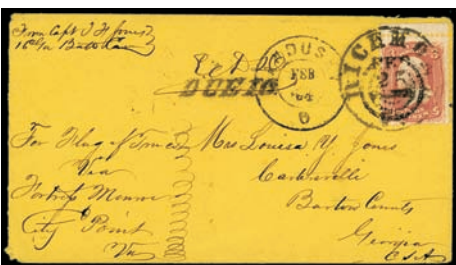 From Capt J H Jones
16th Battalion
SANDUSKY
FEB
6
RICHMOND
FEB
25
DUE 10
For Flag of Truce
Via
Fortress Monroe
City Point
Va
Mrs Louisa Y. Jones
Cartersville
Bartow County
Georgia
C.S.A